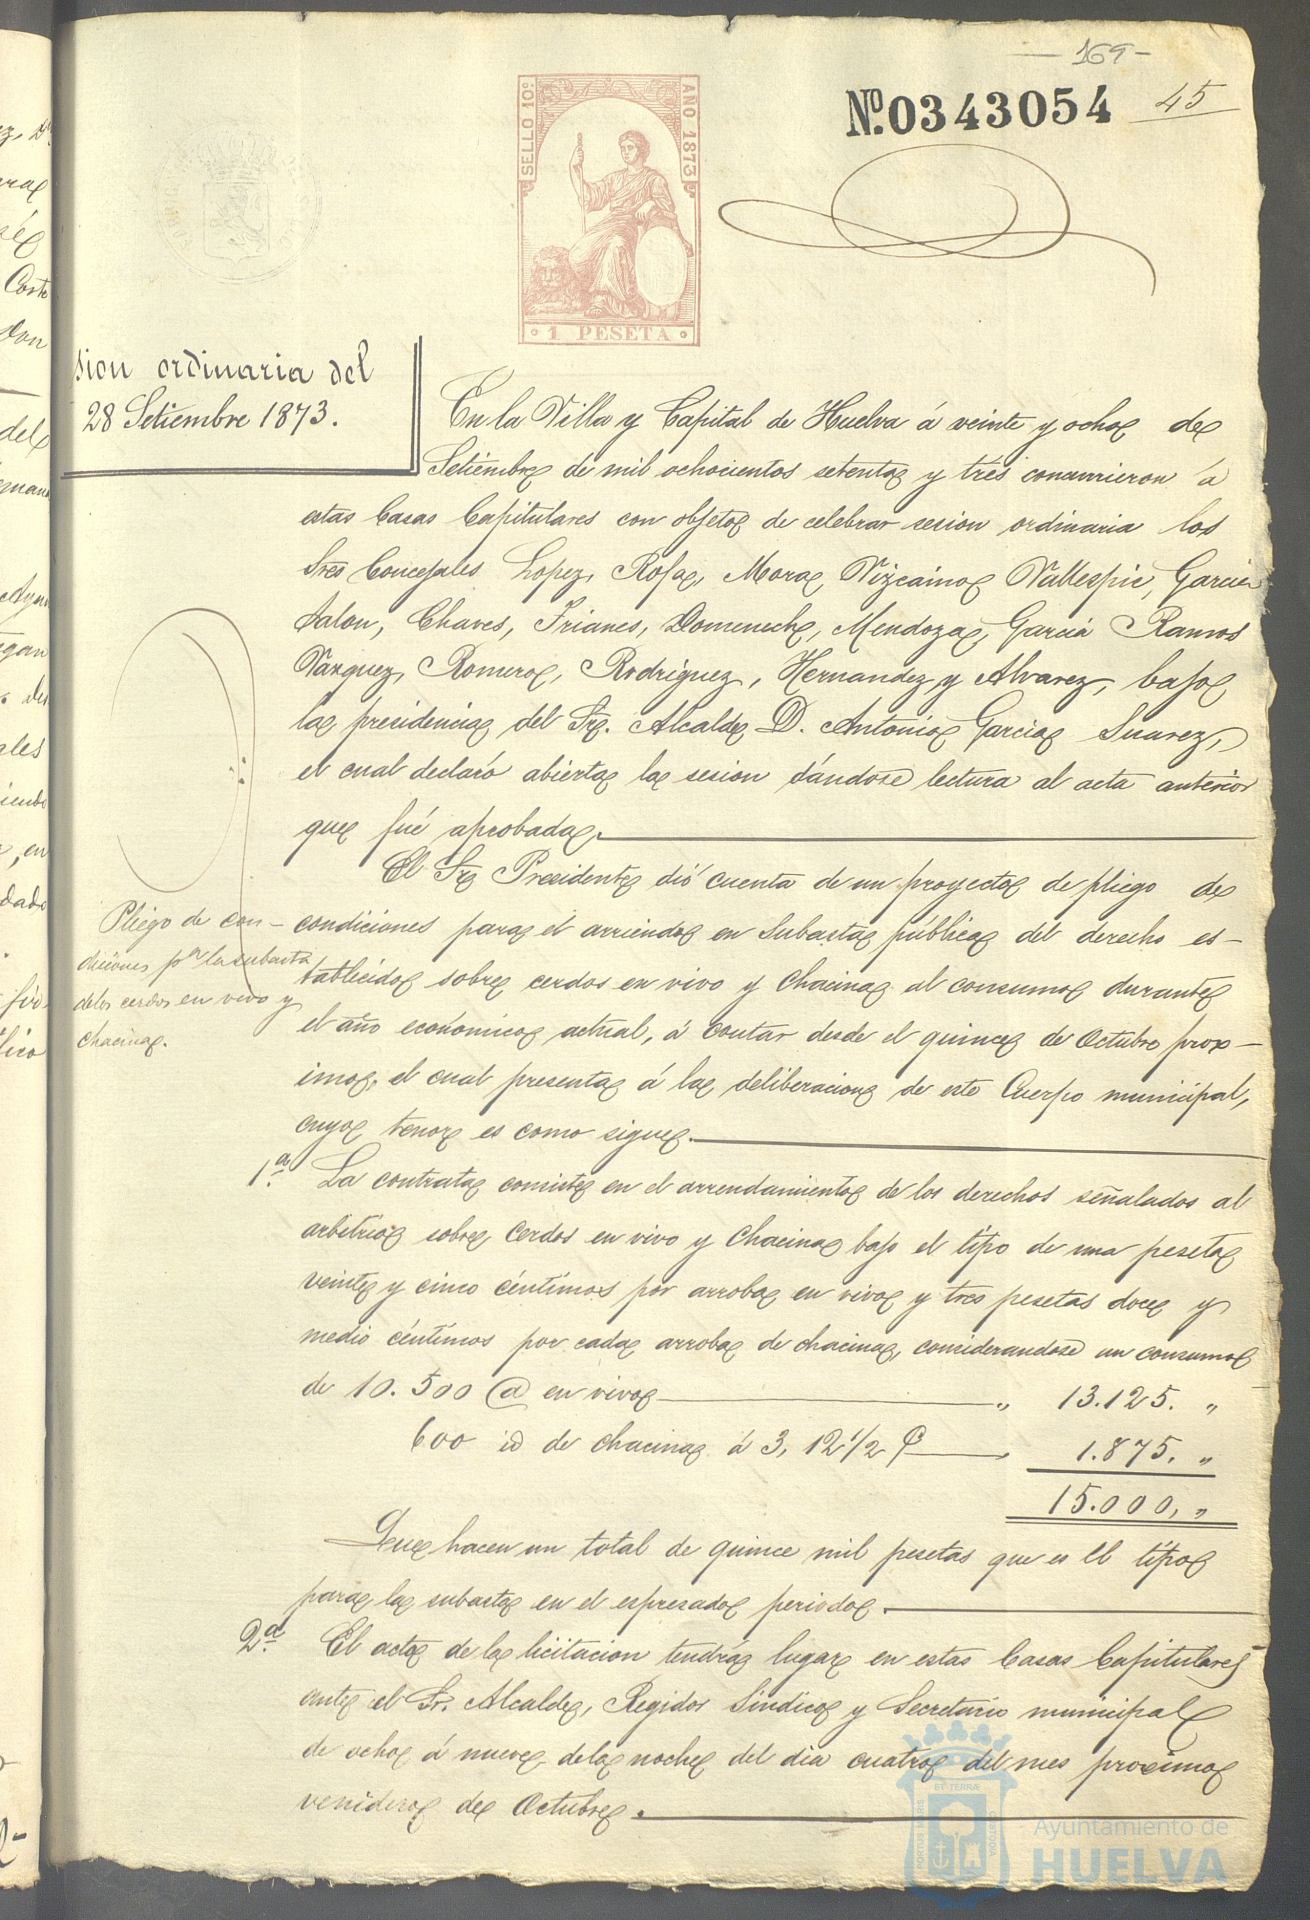 - 169 -
Nº. 0343054
45
SELLO 10º.
AÑO 1873
1 PESETA
sion ordinaria del
28 Setiembre 1873.
En la Villa y Capital de Huelva á veinte y ocho de
Setiembre de mil ochocientos setenta y tres concurrieron á
estas Casas Capitulares con objeto de celebrar sesion ordinaria los
Sres Concejales Lopez, Rosa, Mora, Vizcaino, Vallespir, Garcia
Jalon, Chaves, Trianes, Domenech, Mendoza, Garcia Ramos
Vazquez, Romero, Rodriguez, Hernandez, y Alvarez, bajo
la presidencia del Sr. Alcalde D. Antonio Garcia Suarez,
el cual declaró abierta la sesion dándose lectura al acta anterior
que fué aprobada.
El Sr Presidente dió cuenta de un proyecto de pliego de
Pliego de con-
diciones pª la subasta
de los cerdos en vivo y
chacina.
condiciones para el arriendo en subasta pública del derecho es-
tablecido sobre cerdos en vivo y chacina al consumo durante
el año económico actual, á contar desde el quince de Octubre prox-
imo, el cual presenta á la deliberacion de este Cuerpo municipal,
cuyo tenor es como sigue.
1.ª La contrata consiste en el arrendamiento de los derechos señalados al
arbitrio sobre cerdos en vivo y chacina bajo el tipo de una peseta
veinte y cinco céntimos por arroba en vivo y tres pesetas doce y
medio céntimos por cada arroba de chacina, considerandose un consumo
de 10.500 @ en vivo " 13.125. "
600 id de chacina á 3, 12 1/2 P 1.875. "
15.000, "
Que hacen un total de quince mil pesetas que es el tipo
para la subasta en el espresado periodo.
2.ª El acto de la licitacion tendrá lugar en estas Casas Capitulares
ante el Sr. Alcalde, Regidor Sindico y Secretario municipal
de ocho á nueve de la noche del dia cuatro del mes proximo
venidero de Octubre.
PORTUS MARIS
ET TERRÆ
CUSTODIA
Ayuntamiento de
HUELVA